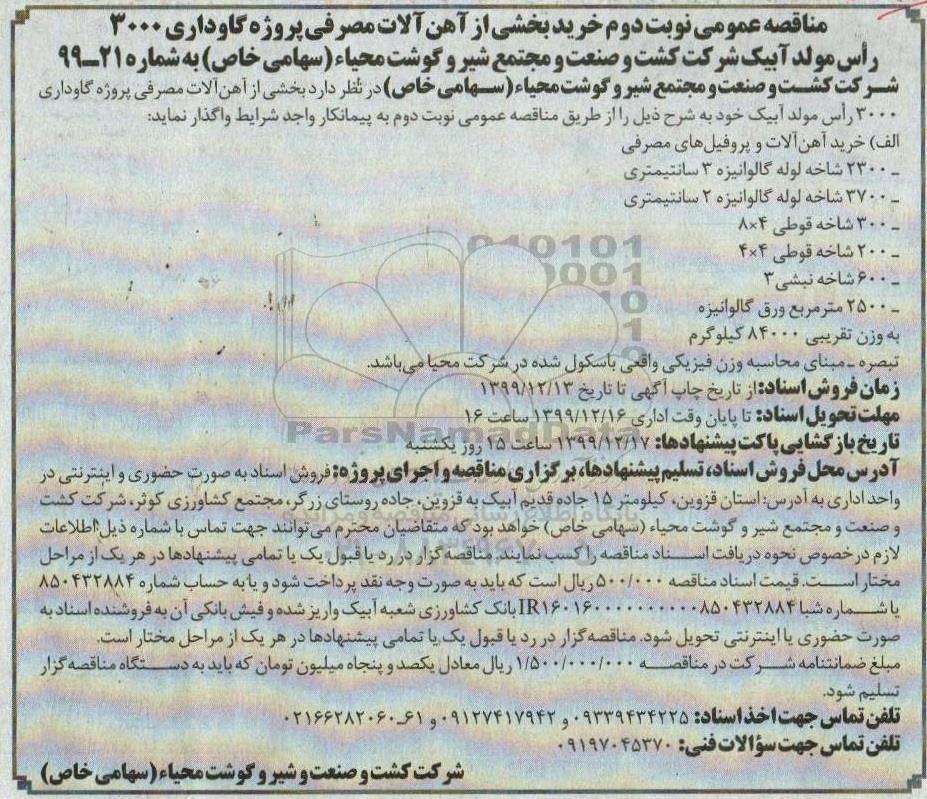 مناقصه عمومی نوبت دوم خرید بخشی از آهن آلات مصرفی پروژه گاوداری ۳۰۰۰
رأس مولد آبیک شرکت کشت و صنعت و مجتمع شیر و گوشت محیاء (سهامی خاص) به شماره ۲۱ـ۹۹
شرکت کشت و صنعت و مجتمع شیر و گوشت محیاء (سهامی خاص) در نظر دارد بخشی از آهن آلات مصرفی پروژه گاوداری
۳۰۰۰ رأس مولد آبیک خود به شرح ذیل را از طریق مناقصه عمومی نوبت دوم به پیمانکار واجد شرایط واگذار نماید:
الف) خرید آهن‌آلات و پروفیل‌های مصرفی
ـ ۲۳۰۰ شاخه لوله گالوانیزه ۳ سانتیمتری
ـ ۳۷۰۰ شاخه لوله گالوانیزه ۲ سانتیمتری
ـ ۳۰۰ شاخه قوطی ۴×۸
ـ ۲۰۰ شاخه قوطی ۴×۴
ـ ۶۰۰ شاخه نبشی ۳
ـ ۲۵۰۰ مترمربع ورق گالوانیزه
به وزن تقریبی ۸۴۰۰۰ کیلوگرم
تبصره ـ مبنای محاسبه وزن فیزیکی واقعی باسکول شده در شرکت محیا می‌باشد.
زمان فروش اسناد: از تاریخ چاپ آگهی تا تاریخ ۱۳۹۹/۱۲/۱۳
مهلت تحویل اسناد: تا پایان وقت اداری ۱۳۹۹/۱۲/۱۶ ساعت ۱۶
تاریخ بازگشایی پاکت پیشنهادها: ۱۳۹۹/۱۲/۱۷ ساعت ۱۵ روز یکشنبه
آدرس محل فروش اسناد، تسلیم پیشنهادها، برگزاری مناقصه و اجرای پروژه: فروش اسناد به صورت حضوری و اینترنتی در
واحد اداری به آدرس: استان قزوین، کیلومتر ۱۵ جاده قدیم آبیک به قزوین، جاده روستای زرگر، مجتمع کشاورزی کوثر، شرکت کشت
و صنعت و مجتمع شیر و گوشت محیاء (سهامی خاص) خواهد بود که متقاضیان محترم می‌توانند جهت تماس با شماره ذیل اطلاعات
لازم در خصوص نحوه دریافت اسناد مناقصه را کسب نمایند. مناقصه گزار در رد یا قبول یک یا تمامی پیشنهادها در هر یک از مراحل
مختار است. قیمت اسناد مناقصه ۵۰۰/۰۰۰ ریال است که باید به صورت وجه نقد پرداخت شود و یا به حساب شماره ۸۵۰۴۳۲۸۸۴
با شماره شبا IR۱۶۰۱۶۰۰۰۰۰۰۰۰۰۰۰۸۵۰۴۳۲۸۸۴ بانک کشاورزی شعبه آبیک واریز شده و فیش بانکی آن به فروشنده اسناد به
صورت حضوری یا اینترنتی تحویل شود. مناقصه‌گزار در رد یا قبول یک یا تمامی پیشنهادها در هر یک از مراحل مختار است.
مبلغ ضمانتنامه شرکت در مناقصه ۱/۵۰۰/۰۰۰/۰۰۰ ریال معادل یکصد و پنجاه میلیون تومان که باید به دستگاه مناقصه‌گزار
تسلیم شود.
تلفن تماس جهت اخذ اسناد: ۰۹۳۳۹۴۳۴۲۲۵ و ۰۹۱۲۷۴۱۷۹۴۲ و ۶۱ـ۰۲۱۶۶۲۸۲۰۶۰
تلفن تماس جهت سؤالات فنی: ۰۹۱۹۷۰۴۵۳۷۰
شرکت کشت و صنعت و شیر و گوشت محیاء (سهامی خاص)
ParsNamadData